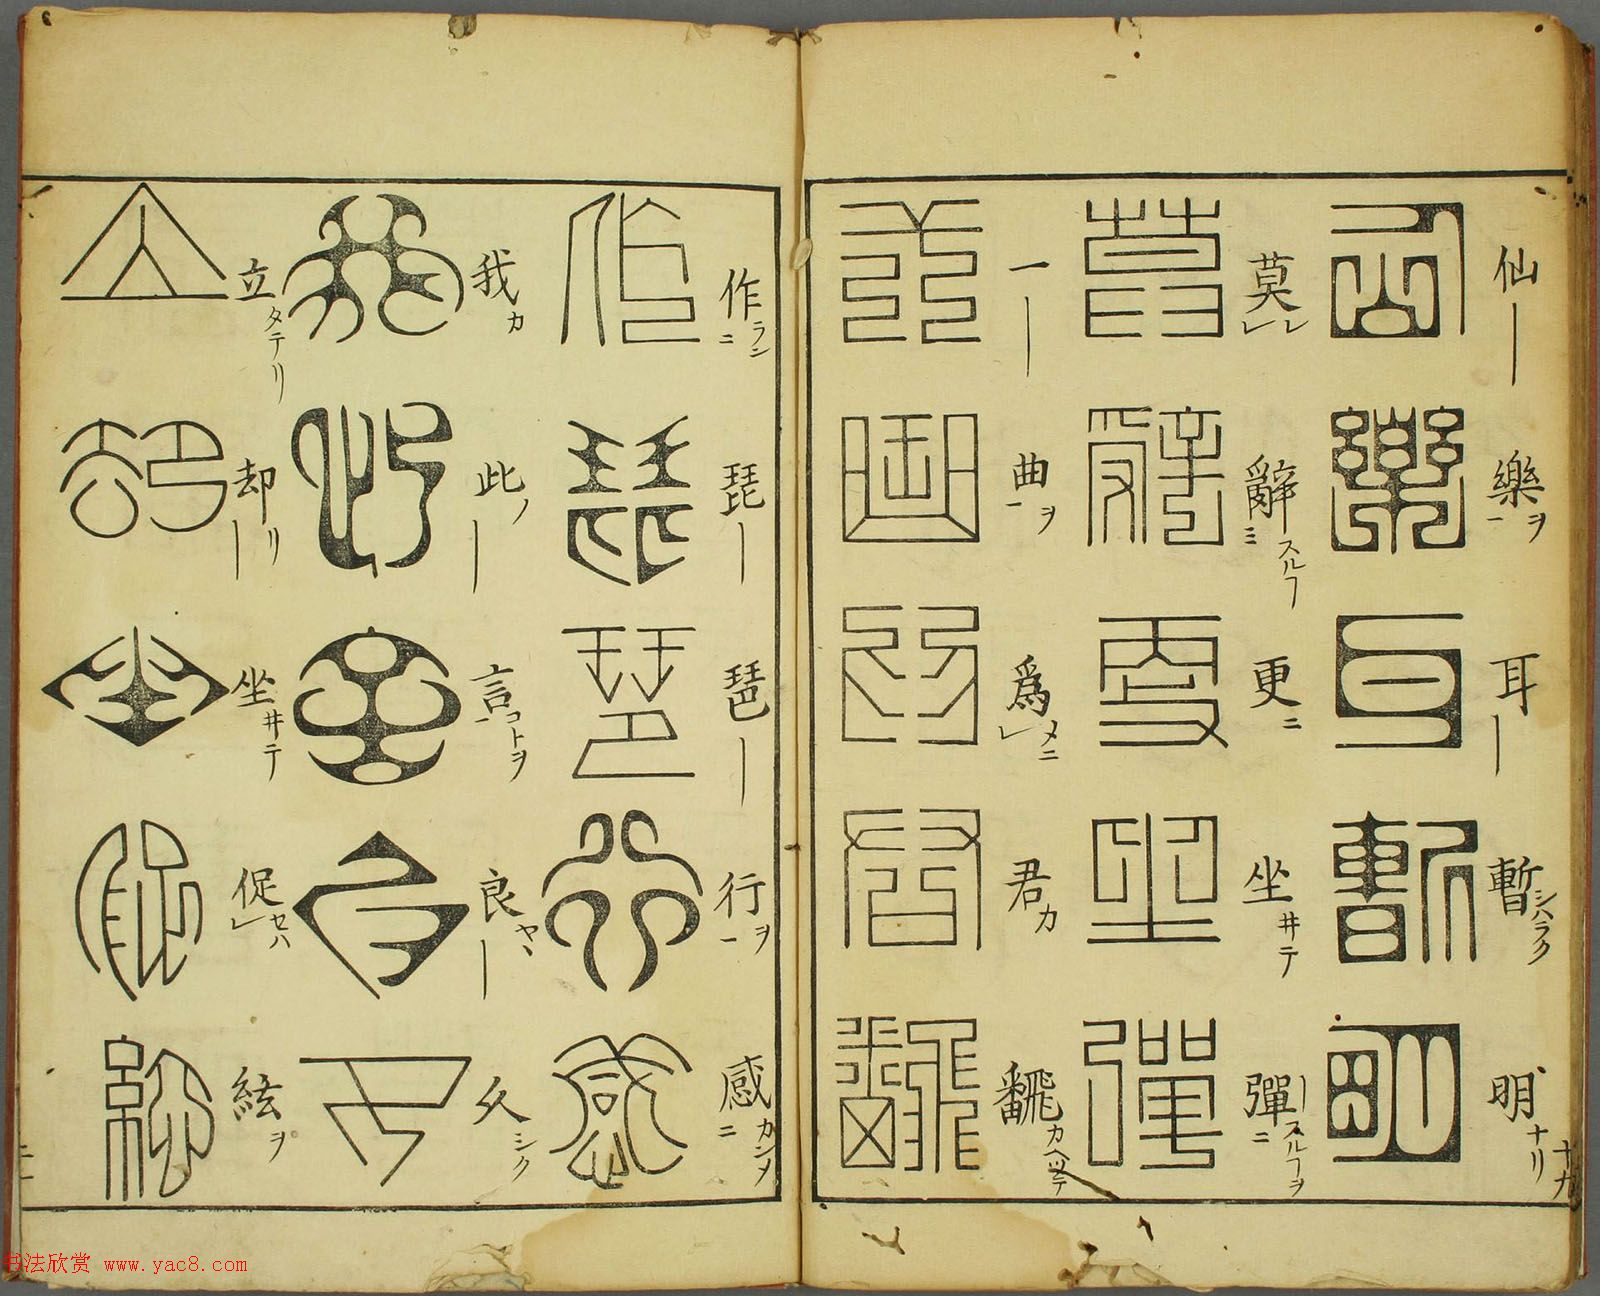 仙｜
樂ヲ一
耳｜
暫シハラク
明ナリ
十九
莫レ
辭ミスルフ
更ニ
坐井テ
彈ニスルフヲ
一｜
曲ヲ一
爲メニ
君カ
飜カヘツテ
作ニラン
琵｜
琶｜
行ヲ一
感ニカンメ
我カ
此ノ｜
言コトヲ一
良ヤヽ｜
久シク
立タテリ
却リ｜
坐井テ
促セハ
絃ヲ
书法欣赏 www.yac8.com